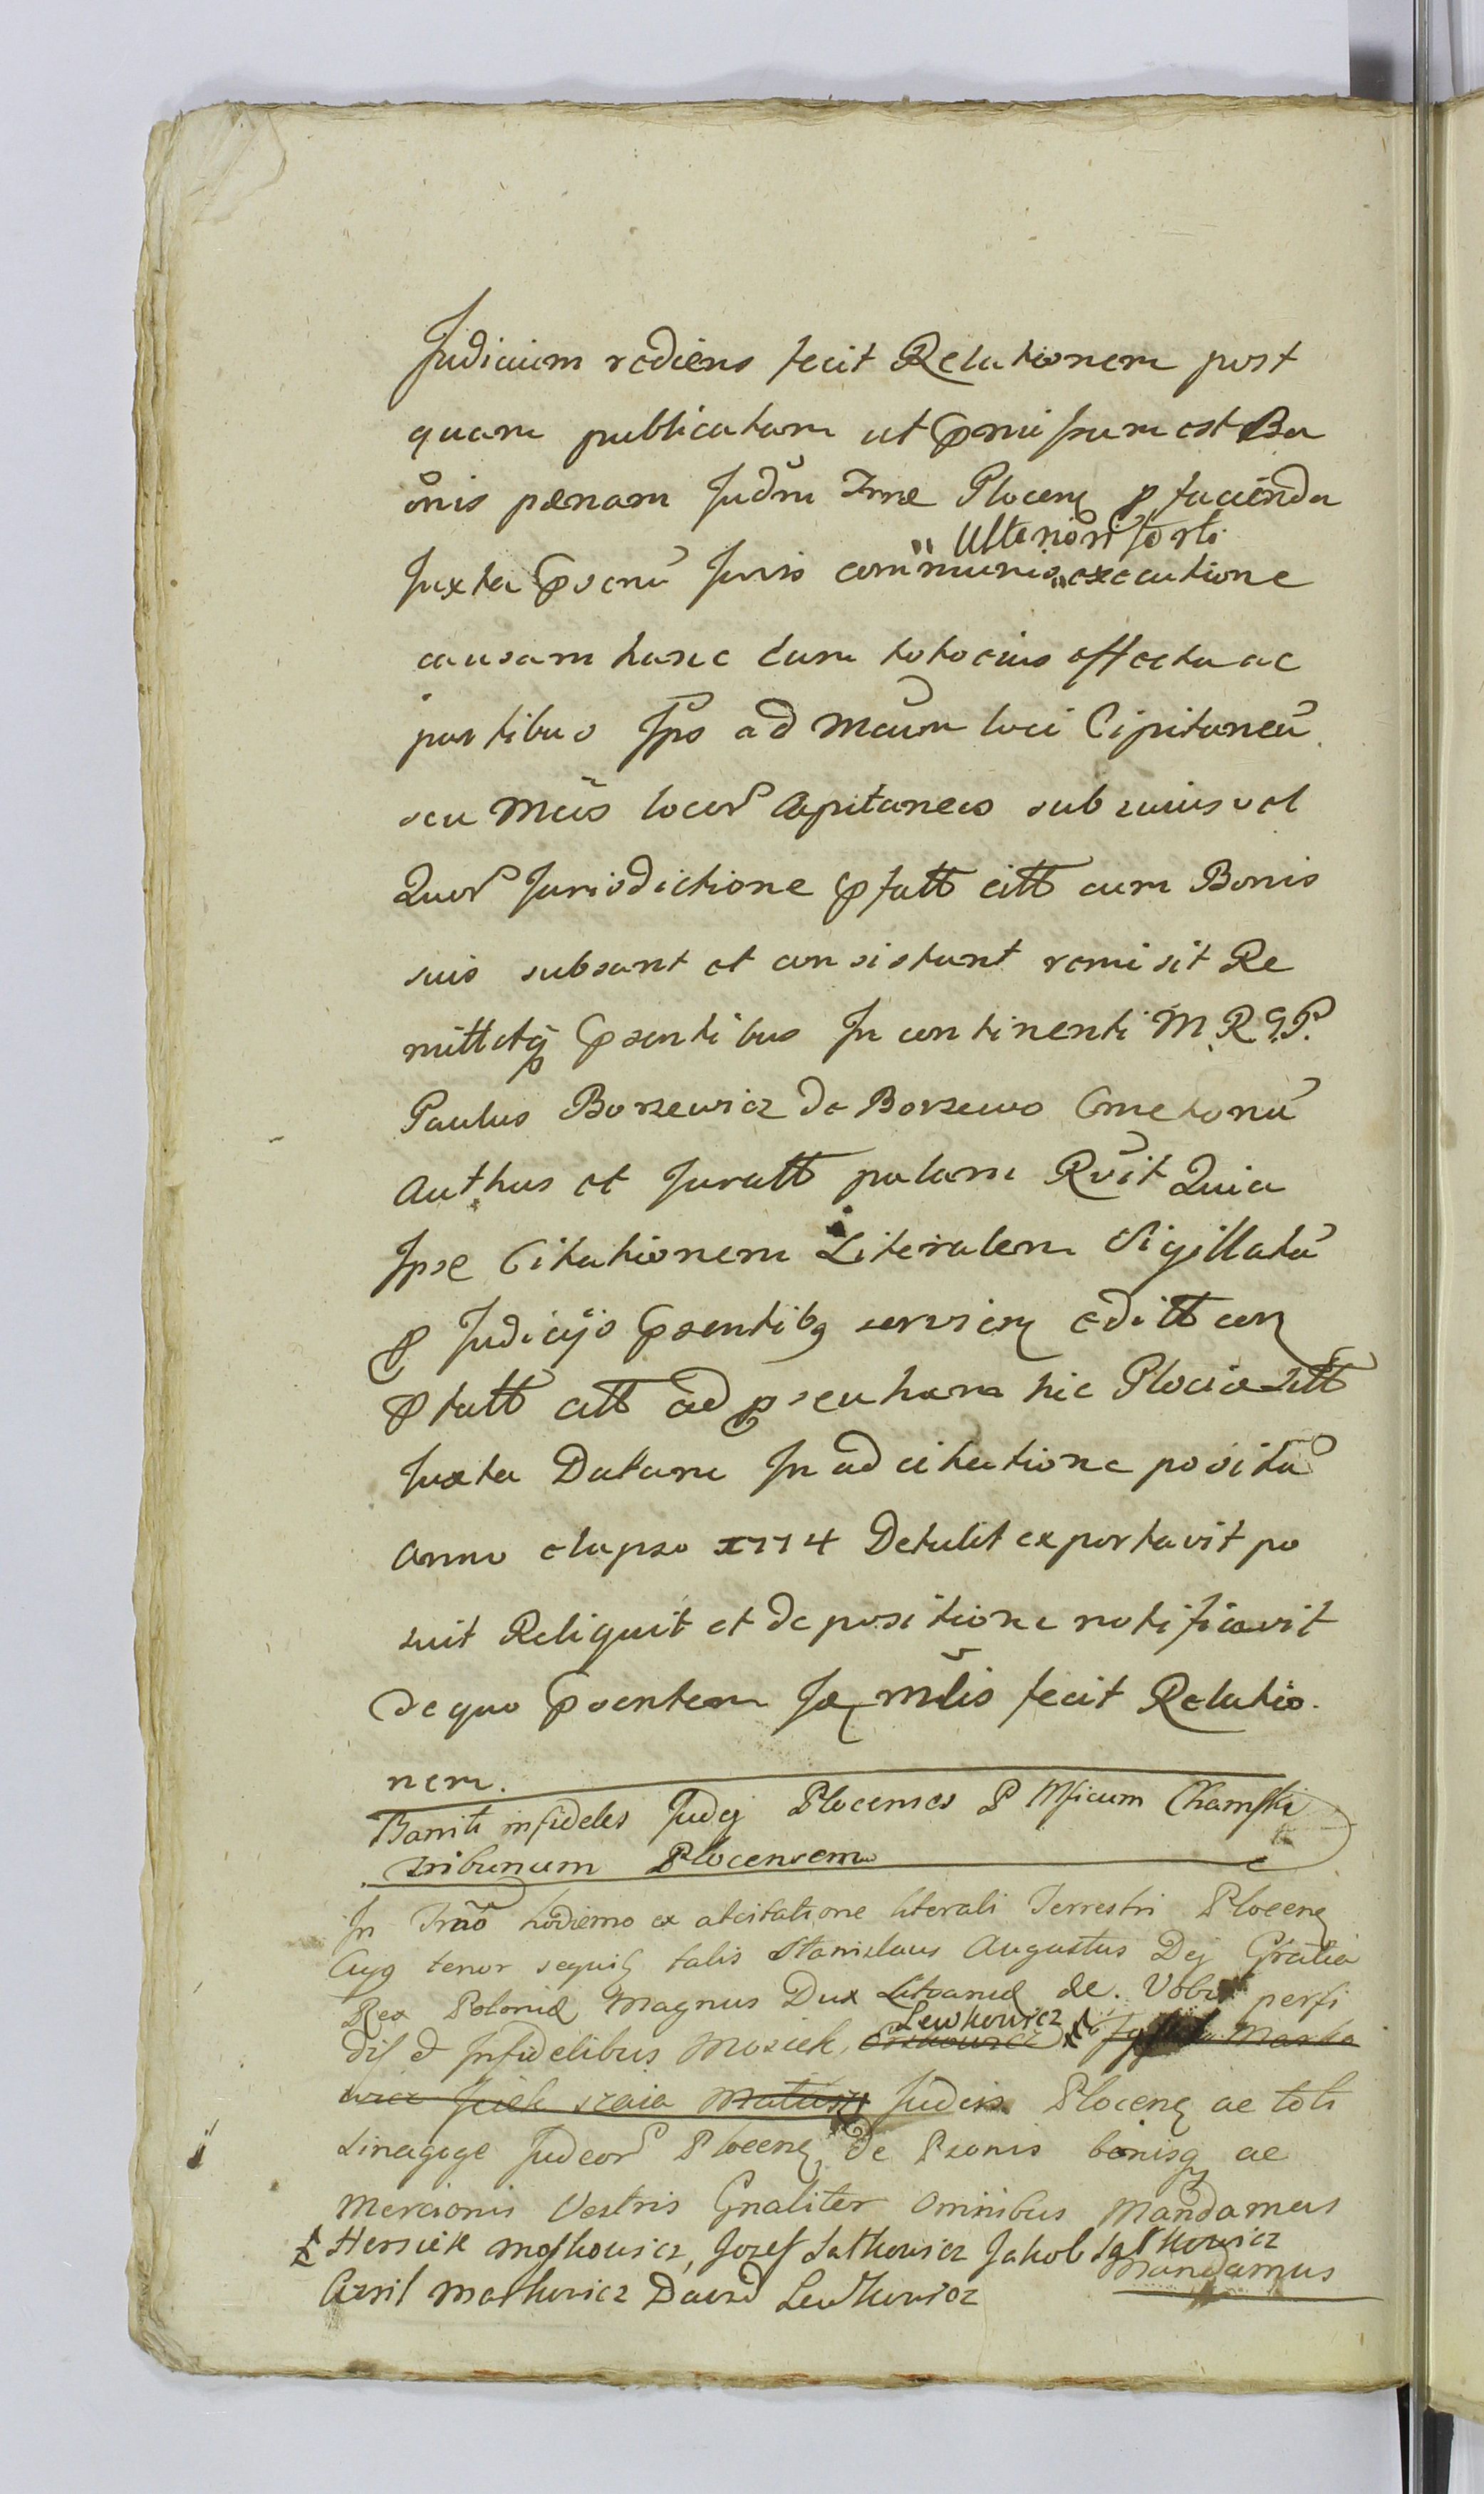 Judicium rediens fecit Relationem post
quam publicatam ut pmissum est Ba
onis pœnam Judm Trrae Plocen p facienda
Ulteriori forti
Juxta Pscnu Juris communis executione
causam hanc cum toto eius effectu ac
partibus Jps ad Mcum loci Cipitaneu
seu Mcis locor Capitaneis sub cuius vel
Quor Jurisdictione pfatt citt cum Bonis
suis subsunt et consistunt remisit Re
mittitq Psentibus In continenti M. R. G. P.
Paulus Borzewicz de Borzewo Cmetonu
Authus et Juratt palam Rvit Quia
Jpse Citationem Literalem Sigillatu
p Judicijs Psentibq servien editt con
p tatt citt ad p seutam hic Plociæ Sitt
Juxta Datam In ad citatione positu
Anno elapso 1774 Detulit exportavit po
suit Reliquit et de positione notificavit
de quo Psentem fa mlis fecit Relatio
nem.
Baniti infideles Judej Plocenses P Mficum Chamski
tribunum Plocensem
In Trno hodierno ex atcitatione literali Terrestri Plocen
Cujq tenor sequit talis Stanislaus Augustus Dej Gratia
Rex Poloniæ Magnus Dux Litvaniæ &c. Vobis perfi
Lewkowicz
dis & Infidelibus Mosiek, Jcek szaia Judeis Plocen ac toti
Sinagoge Judeor Plocen, De Psonis bonisq ac
Mercionis Vestris Gnaliter Omnibus Mandamus
Hersiek Moszkowicz, Jozef Satkowicz Jakob Satkowicz
Mandamus
Azril Matkowicz Dawid Lewkowicz